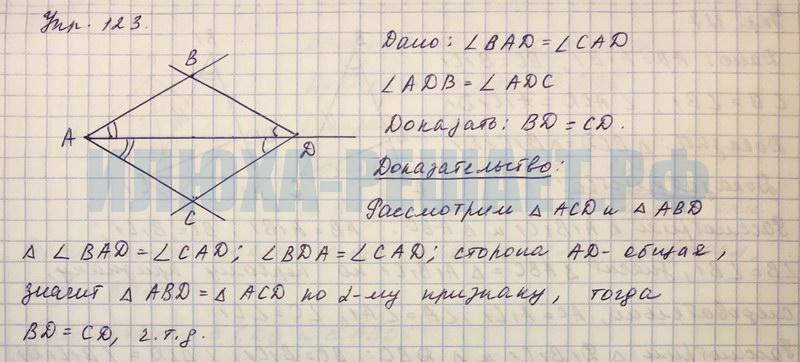 Упр. 123.
B
A
D
C
Дано: ∠BAD = ∠CAD
∠ADB = ∠ADC
Доказать: BD = CD.
Доказательство:
Рассмотрим △ ACD и △ ABD
△ ∠BAD = ∠CAD; ∠BDA = ∠CAD; сторона AD - общая,
значит △ ABD = △ ACD по 2-му признаку, тогда
BD = CD, ч.т.д.
ИЛЮХА-РЕШАЕТ.РФ